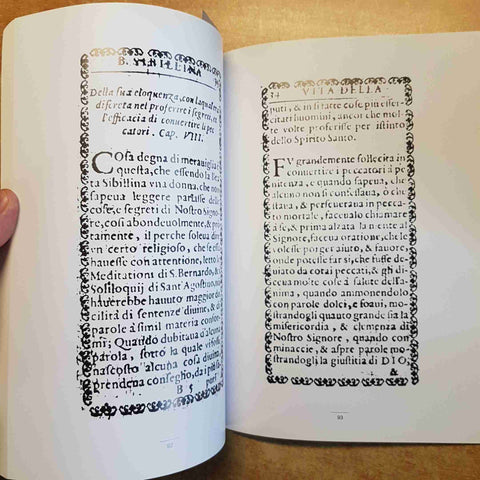 B. SIBILLINA
Della sua eloquenza, con la qual era
discreta nel proferire i segreti, et
l'efficacia di convertire li pec
catori. Cap. VIII.
COsa degna di meraviglia è
questa, che essendo la Bea
ta Sibillina vna donna, che non
sapeua leggere parlasse delle
cose, e segreti di Nostro Signo
re, così abondeuolmente, & pro
tamente, il perche soleua dir
vn certo religioso, che se
hauesse con attentione, letto
Meditationi di S. Bernardo, &
Soliloquij di Sant'Agostino, no
hauerebbe hauuto maggior fa
cilità di sentenze diuine, & di
parole à simil materia confor
mi; Quando dubitaua d'alcuna
parola, sotto la quale vi fosse
nascosto alcuna cosa diuina
prendeua conseglio, da i più sa
B 5 puti
92
34 VITA DELLA
puti, & in fatte cose più esser
citati huomini, ancor che mol
te volte proferisse per istinto
dello Spirito Santo.
FV grandemente sollecita in
conuertire i peccatori à pe
nitenza, e quando sapeua, che
alcuno non si confessaua, ò che
era, & perseueraua in peccato
mortale, faceualo chiamare
à se, & prima alzata la mente al
Signore, faceua oratione, che le
volesse porger aiuto, & fauore,
onde potesse far sì, che fusse de-
uiato da cotai peccati, & gli di
ceua molte cose à salute dell'a-
nima, quando animonendolo
con parole dolci, e soaui, mo-
strandogli quanto grande sia la
misericordia, & clemenza di
Nostro Signore, quando con
minaccie, & aspre parole mo-
strandogli la giustitia di DIO,
&
93